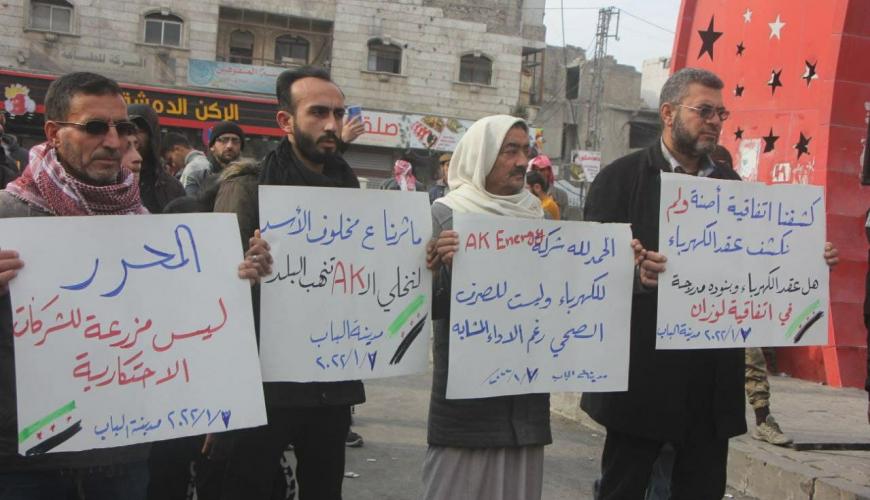 الركن الدمشقي
المحرر
ليس مزرعة للشركات
الاحتكارية
مدينة الباب ٢٠٢٢/١/٧
ماثرنا ع مخلوف الأسد
لنخلي الـ AK تنهب البلد
مدينة الباب
٢٠٢٢/١/٧
الحمد لله شركة AK Energy
للكهرباء وليست للصرف
الصحي رغم الاداء المشابه
مدينة الباب
كشفنا اتفاقية أضنة ولم
نكشف عقد الكهرباء
هل عقد الكهرباء وبنوده مدرجة
في اتفاقية لوزان
٢٠٢٢/١/٧ مدينة الباب